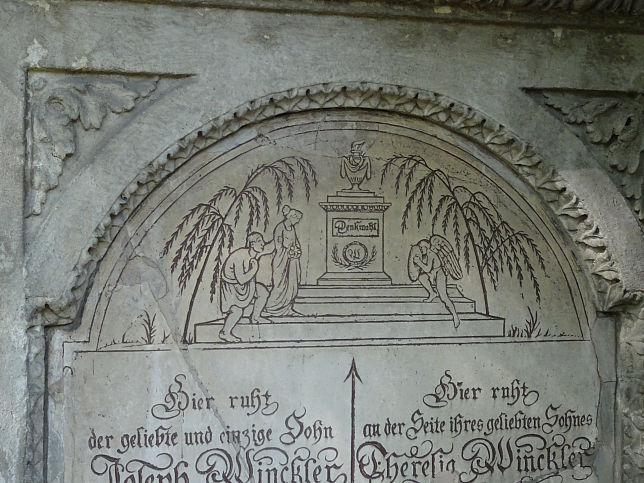 Denkmahl
W
Hier ruht
der geliebte und einzige Sohn
Joseph Winckler
Hier ruht
an der Seite ihres geliebten Sohnes
Theresia Winckler